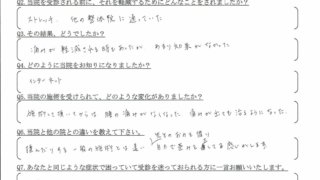 Q2. 当院を受診される前に、それを軽減するためにどんなことをされましたか？
ストレッチ、他の整体院に通っていた
Q3. その結果、どうでしたか？
痛みが軽減される時もあったが、あまり効果がなかった
Q4. どのように当院をお知りになりましたか？
インターネット
Q5. 当院の施術を受けられて、どのような変化がありましたか？
施術して頂いてからは腰の痛みがなくなった 痛みが出ても治るようになった。
Q6. 当院と他の院との違いを教えて下さい。
揉んだりする一般の施術とは違い
自力で
感じがします
Q7. あなたと同じような症状で困っていて受診を迷っておられる方に一言お願いいたします。